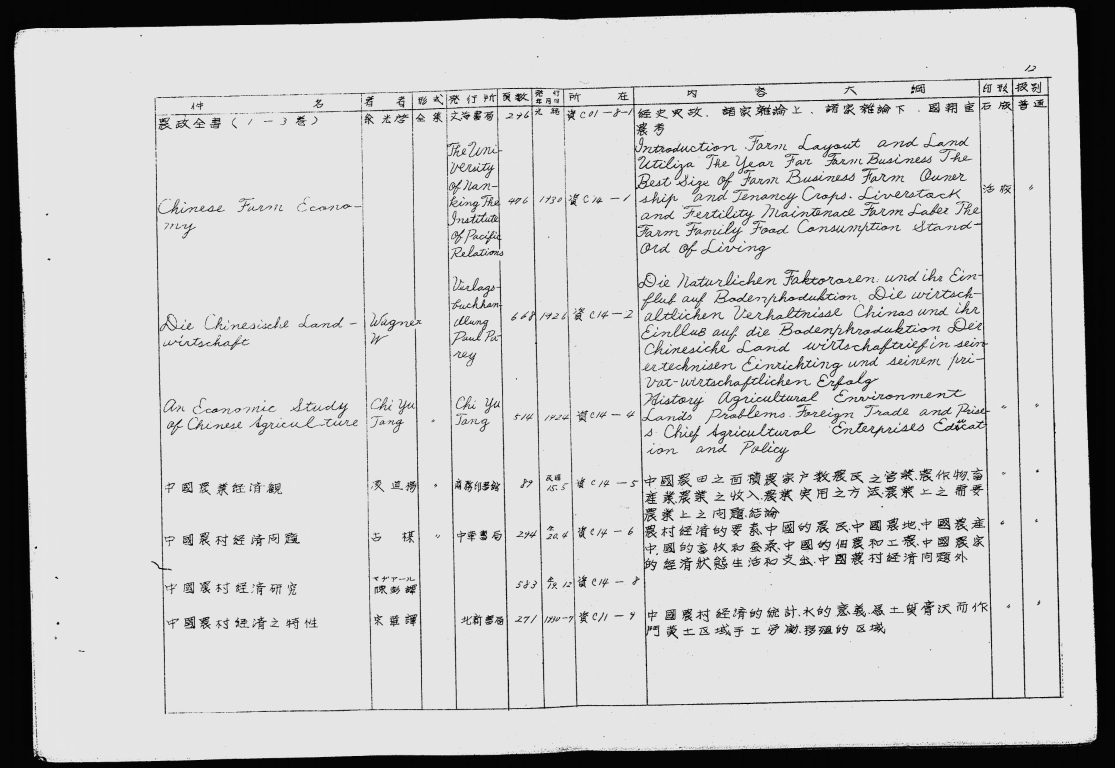 12
件名 著者 形式 発行所 頁数 発行年月日 所在 内容大綱 印形 扱別
農政全書(1-3巻) 徐光啓 全集 文海書局 296 資C01-8-1 經史典故、諸家雜論上、諸家雜論下、國朝重 石版 普通
農考
Chinese Farm Econo-
my
The Uni-
versity
of Nan-
king The
Institute
of Pacific
Relations
406 1930 資C14-1
Introduction Farm Layout and Land
Utiliza The Year Far Farm Business The
Best Size of Farm Business Farm Owner
ship and Tenancy Crops. Liverstack
and Fertility Maintenace Farm Laber The
Farm Family Food Consumption Stand-
Ord of Living
活版 〃
Die Chinesische Land-
wirtschaft
Wagner
W
Verlags-
buchhan-
dlung
Paul Pa-
rey
668 1926 資C14-2
Die Naturlichen Faktororen und ihr Ein-
fluß auf Bodenphoduktion Die wirtsch-
altlichen Verhaltnisse Chinas und ihr
Einlluß auf die Bodenphroduktion Die
Chinesiche Land wirtschaftrief in sein
er technisen Einrichting und seinem pri-
vat-wirtschaftlichen Erfolg
An Economic Study
of Chinese Agricul-ture
Chi Yu
Tang
〃
Chi Yu
Tang
514 1924 資C14-4
History Agricultural Environment
Lands Problems. Foreign Trade and Price-
s Chief Agricultural Enterprises Educat
ion and Policy
〃 〃
中國農業経済観 凌道揚 〃 商務印書館 89 民國15.5 資C14-5 中國農田之面積農家户数農民之営業、農作物、畜 〃 〃
産業、農業之收入、農業実用之方法農業上之需要
農業上之問題、結論
中國農村経済問題 古楳 〃 中華書局 294 〃20.4 資C14-6 農村経済的要素、中國的農民、中國農地、中國農産 〃 〃
中國的畜牧和蚕桑、中國的佃農和工農、中國農家
的経済狀態生活和支出、中國農村経済問題外
中國農村経済研究 マヂアール 陳彭譯 583 〃19.12 資C14-8
中國農村経済之特性 宋華譯 北新書局 271 1930-9 資C11-9 中國農村経済的統計、水的意義、風土質膏沃而作 〃 〃
門黄土区域手工労働、移殖的区域